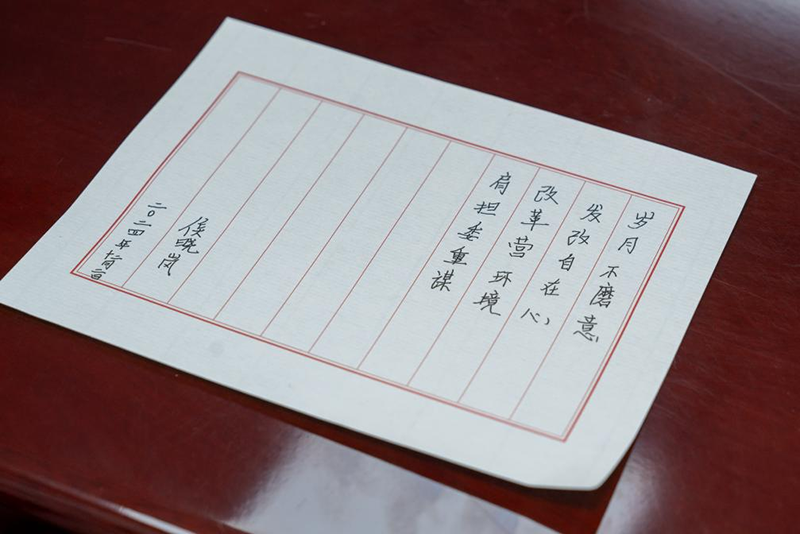 岁月不磨意
发改自在心
改革营环境
肩担委重谋
侯晓岚
二〇二四年十月二日